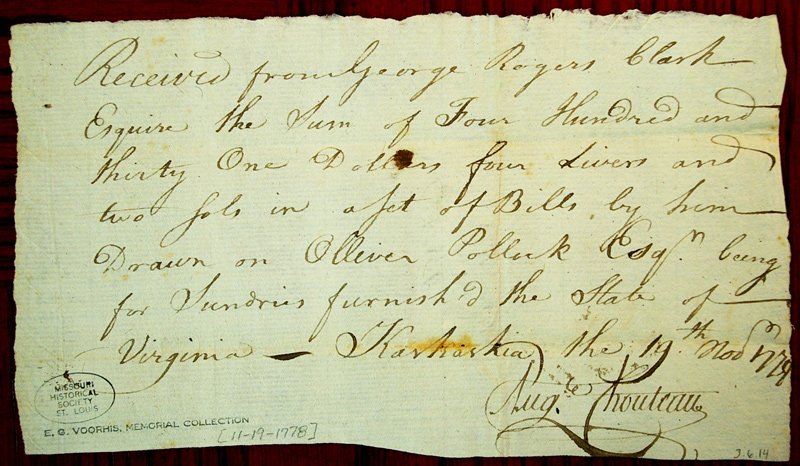 Received from George Rogers Clark
Esquire the Sum of Four Hundred and
thirty One Dollars four Livers and
two Sols in a Set of Bills by him
Drawn on Olliver Pollock Esqr. being
for Sundries furnish'd the State of
Virginia — Kaskaskia the 19th Novr 1778
Augte Chouteau
MISSOURI
HISTORICAL
SOCIETY
ST. LOUIS
E. G. VOORHIS, MEMORIAL COLLECTION
[11-19-1778]
3.6.14